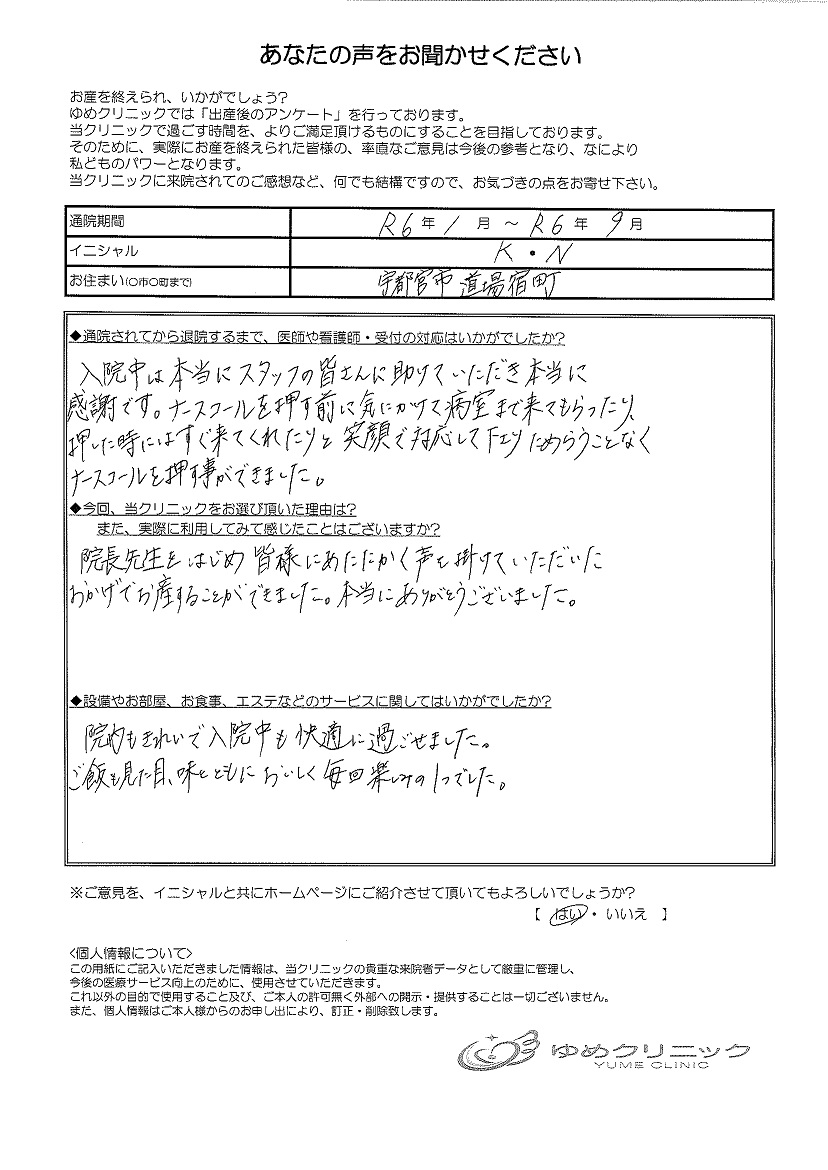 あなたの声をお聞かせください
お産を終えられ、いかがでしょう?
ゆめクリニックでは「出産後のアンケート」を行っております。
当クリニックで過ごす時間を、よりご満足頂けるものにすることを目指しております。
そのために、実際にお産を終えられた皆様の、率直なご意見は今後の参考となり、なにより
私どものパワーとなります。
当クリニックに来院されてのご感想など、何でも結構ですので、お気づきの点をお寄せ下さい。
通院期間 R6年 1月 ～ R6年 9月
イニシャル K・N
お住まい(〇市〇町まで) 宇都宮市 道場宿町
◆通院されてから退院するまで、医師や看護師・受付の対応はいかがでしたか?
入院中は本当にスタッフの皆さんに助けていただき本当に
感謝です。ナースコールを押す前に気にかけて病室まで来てもらったり、
押した時にはすぐ来てくれたりと笑顔で対応して下さりためらうことなく
ナースコールを押す事ができました。
◆今回、当クリニックをお選び頂いた理由は?
また、実際に利用してみて感じたことはございますか?
院長先生をはじめ皆様にあたたかく声を掛けていただいた
おかげでお産することができました。本当にありがとうございました。
◆設備やお部屋、お食事、エステなどのサービスに関してはいかがでしたか?
院内もきれいで入院中も快適に過ごせました。
ご飯も見た目、味とともにおいしく毎回楽しみの1つでした。
※ご意見を、イニシャルと共にホームページにご紹介させて頂いてもよろしいでしょうか?
【 はい・いいえ 】
<個人情報について>
この用紙にご記入いただきました情報は、当クリニックの貴重な来院者データとして厳重に管理し、
今後の医療サービス向上のために、使用させていただきます。
これ以外の目的で使用すること及び、ご本人の許可無く外部への開示・提供することは一切ございません。
また、個人情報はご本人様からのお申し出により、訂正・削除致します。
ゆめクリニック
YUME CLINIC